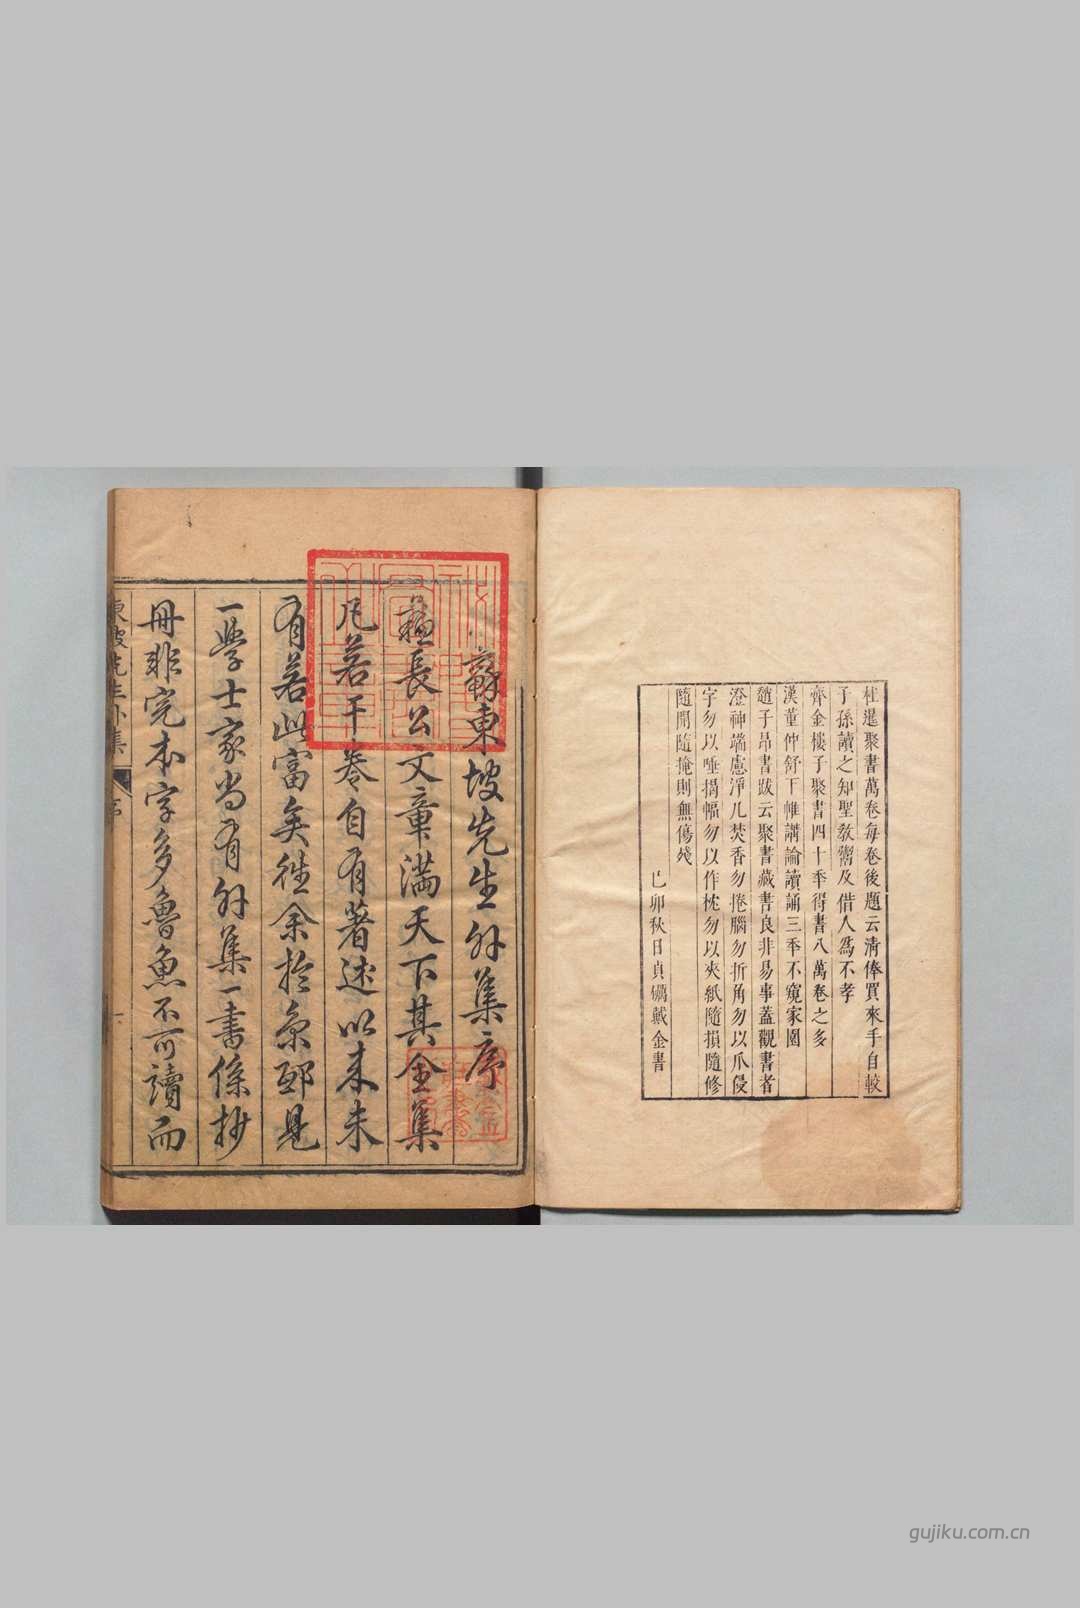 杜暹聚書萬卷每卷後題云清俸買來手自較
子孫讀之知聖教鬻及借人爲不孝
齊金樓子聚書四十年得書八萬卷之多
漢董仲舒下帷講論讀誦三年不窺家園
趙子昂書跋云聚書藏書良非易事蓋觀書者
澄神端慮淨几焚香勿捲腦勿折角勿以爪侵
字勿以唾揭幅勿以作枕勿以夾紙隨損隨修
隨開隨掩則無傷殘
己卯秋日貞礪戴金書
蘇東坡先生外集序
蘇長公文章滿天下其全集
凡若干卷自有著述以来未
有若此富矣徃余於
一學士家尚有外集一書係抄
冊非完本字多魯魚不可讀而
東坡先生外集
序
一
gujiku.com.cn